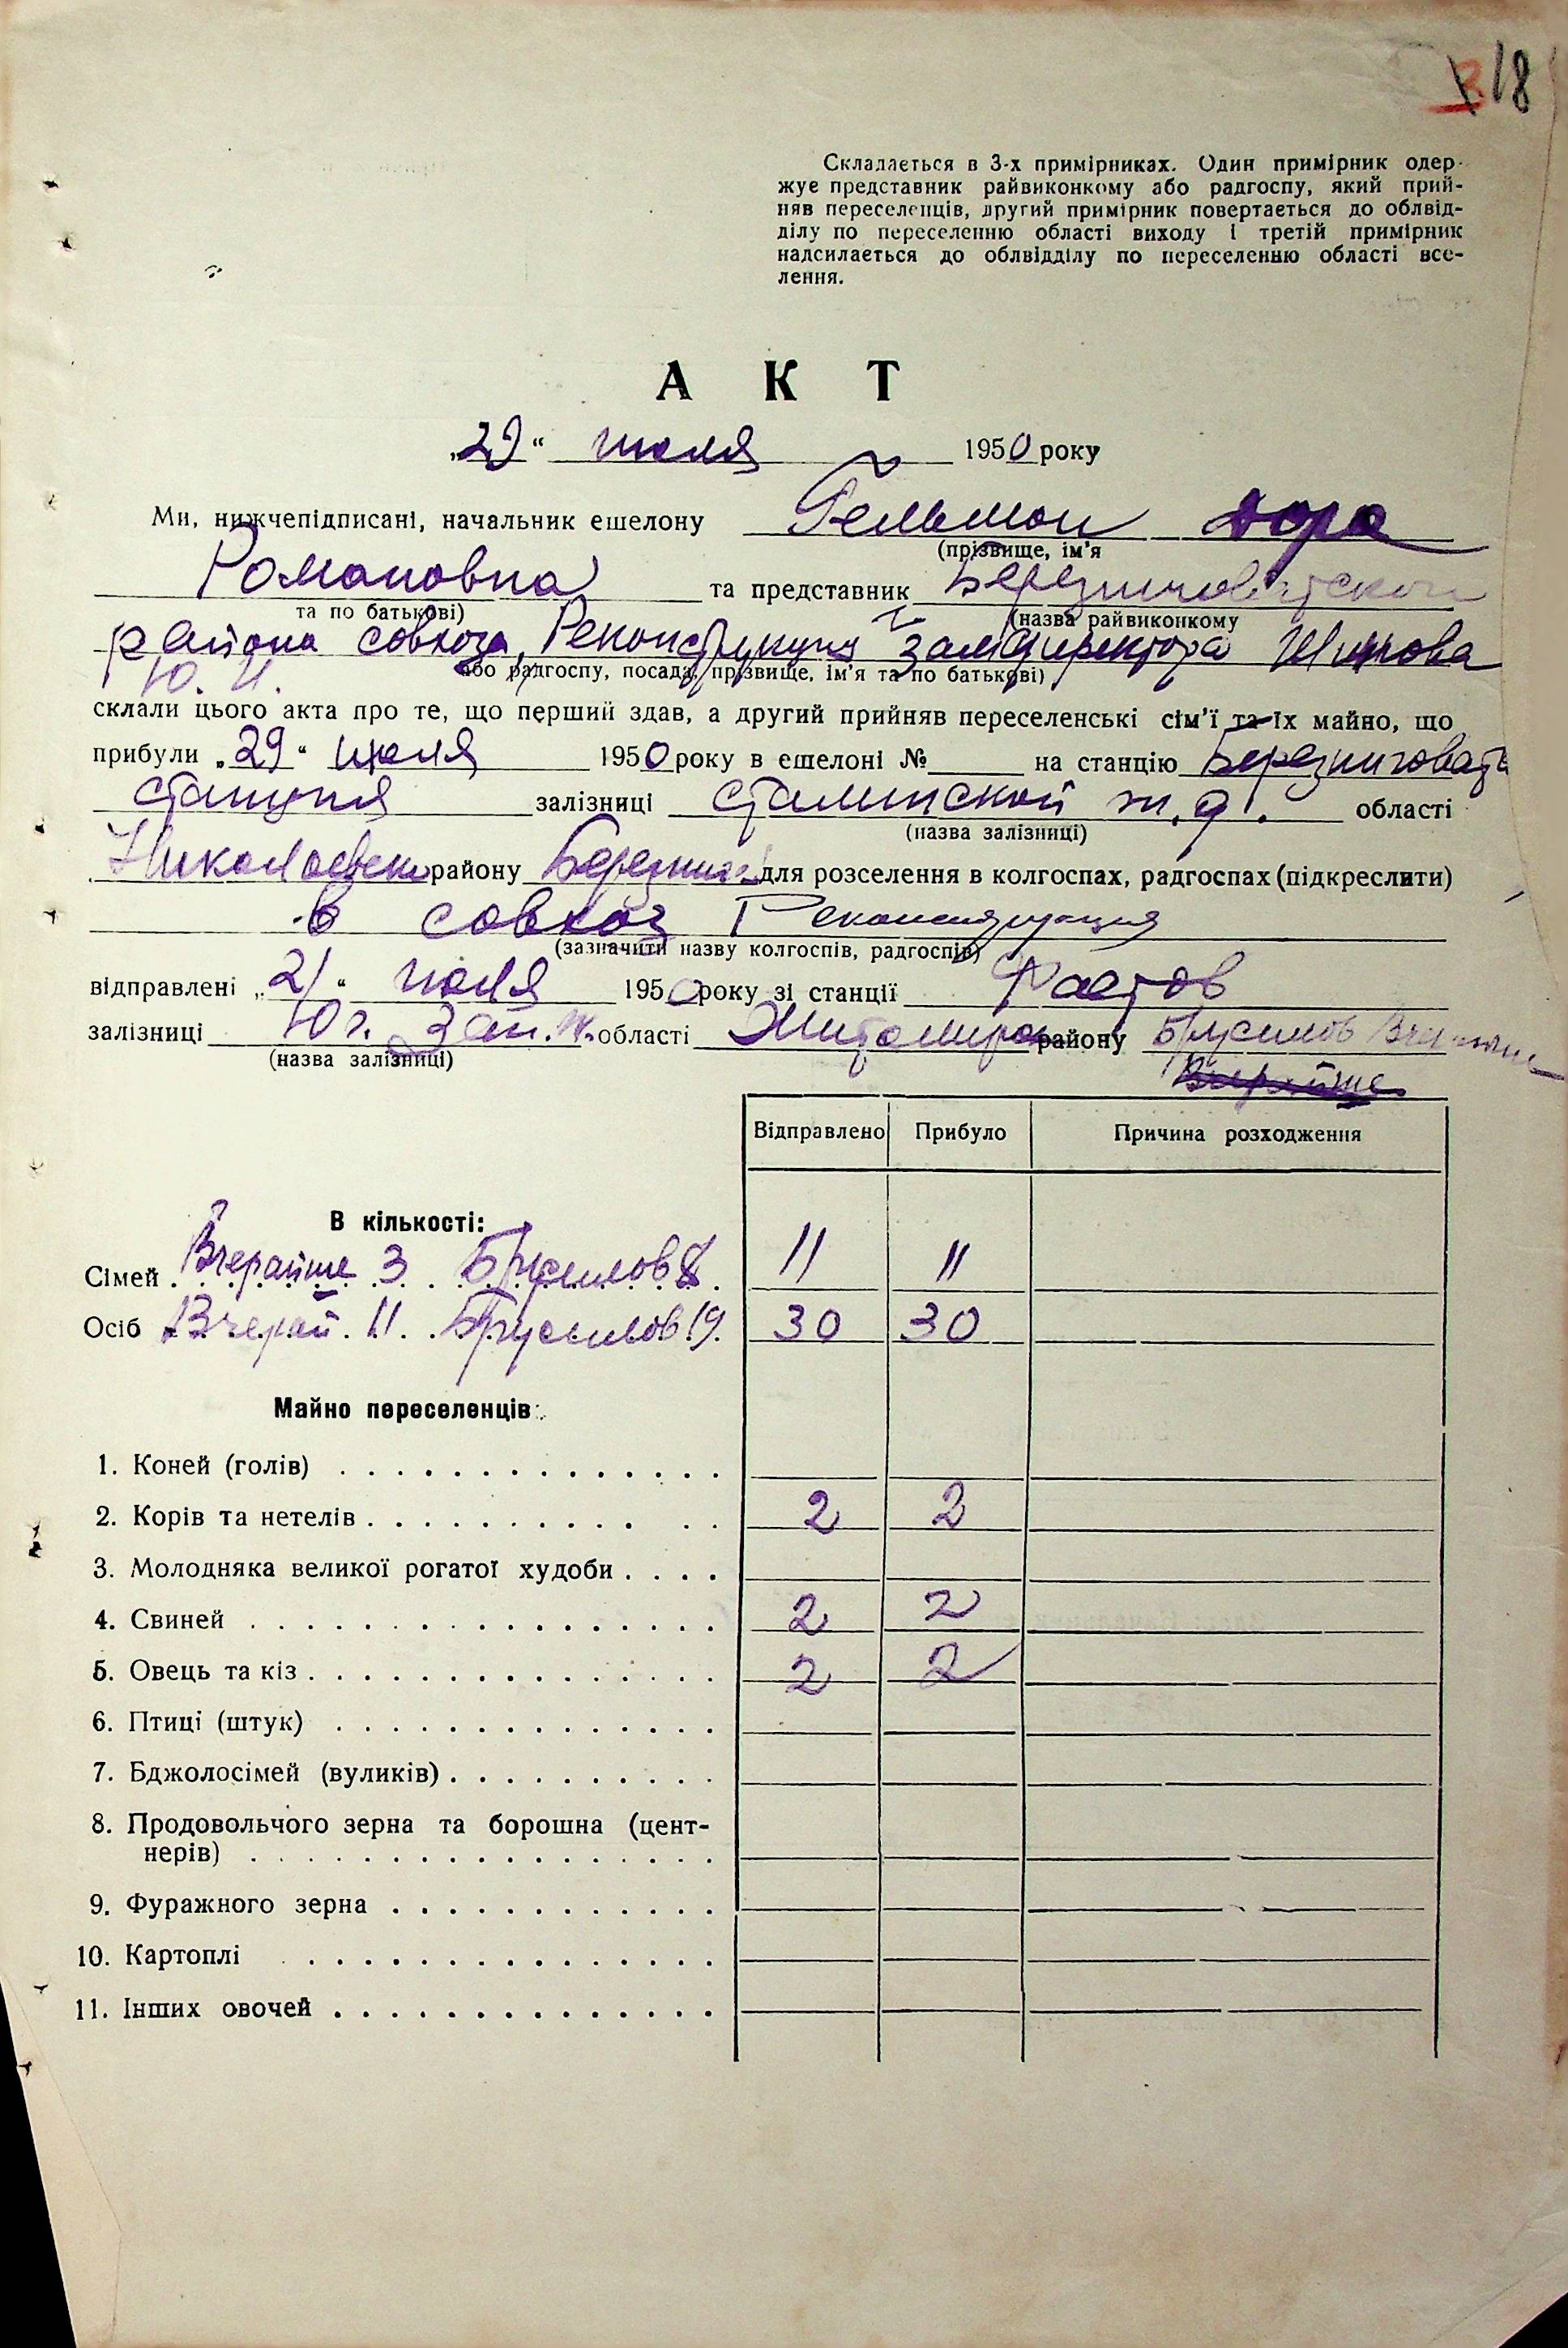 18
Складається в 3-х примірниках. Один примірник одер-
жує представник райвиконкому або радгоспу, який прий-
няв переселенців, другий примірник повертається до облвід-
ділу по переселенню області виходу і третій примірник
надсилається до облвідділу по переселенню області все-
лення.
АКТ
„29“ июля 1950 року
Ми, нижчепідписані, начальник ешелону Гельман Дора
(прізвище, ім'я
Романовна та представник
та по батькові) (назва райвиконкому
района совхоза Реконструкция зам директора
або радгоспу, посада, прізвище, ім'я та по батькові)
склали цього акта про те, що перший здав, а другий прийняв переселенські сім'ї та їх майно, що
прибули „29“ июля 1950 року в ешелоні № на станцію
станция залізниці сталинской ж.д. області
(назва залізниці)
району для розселення в колгоспах, радгоспах (підкреслити)
в совхоз Реконструкция
(зазначити назву колгоспів, радгоспів)
відправлені „21“ июля 1950 року зі станції Фастов
залізниці Юг. Зап. області району Брусилов
(назва залізниці)
Вчерайше
Відправлено Прибуло Причина розходження
В кількості:
Сімей Вчерайше 3 Брусилов 8 11 11
Осіб Вчерай. 11 Брусилов 19. 30 30
Майно переселенців:
1. Коней (голів)
2. Корів та нетелів 2 2
3. Молодняка великої рогатої худоби
4. Свиней 2 2
5. Овець та кіз 2 2
6. Птиці (штук)
7. Бджолосімей (вуликів)
8. Продовольчого зерна та борошна (цент-
нерів)
9. Фуражного зерна
10. Картоплі
11. Інших овочей